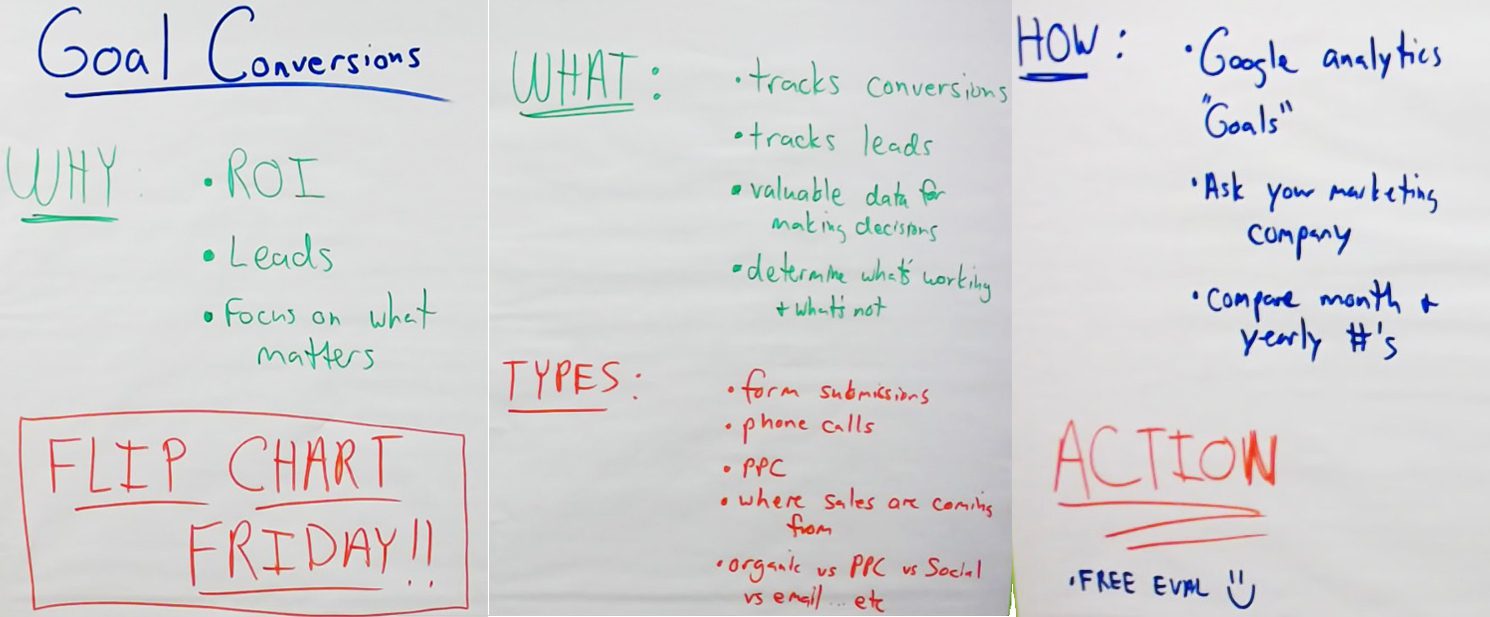 Goal Conversions
WHY:
• ROI
• Leads
• Focus on what
matters
FLIP CHART
FRIDAY!!
WHAT:
• tracks conversions
• tracks leads
• valuable data for
making decisions
• determine what's working
+ what's not
TYPES:
• form submissions
• phone calls
• PPC
• where sales are coming
from
• organic vs PPC vs Social
vs email... etc
HOW:
• Google analytics
"Goals"
• Ask your marketing
company
• Compare month +
yearly #'s
ACTION
• FREE EVAL